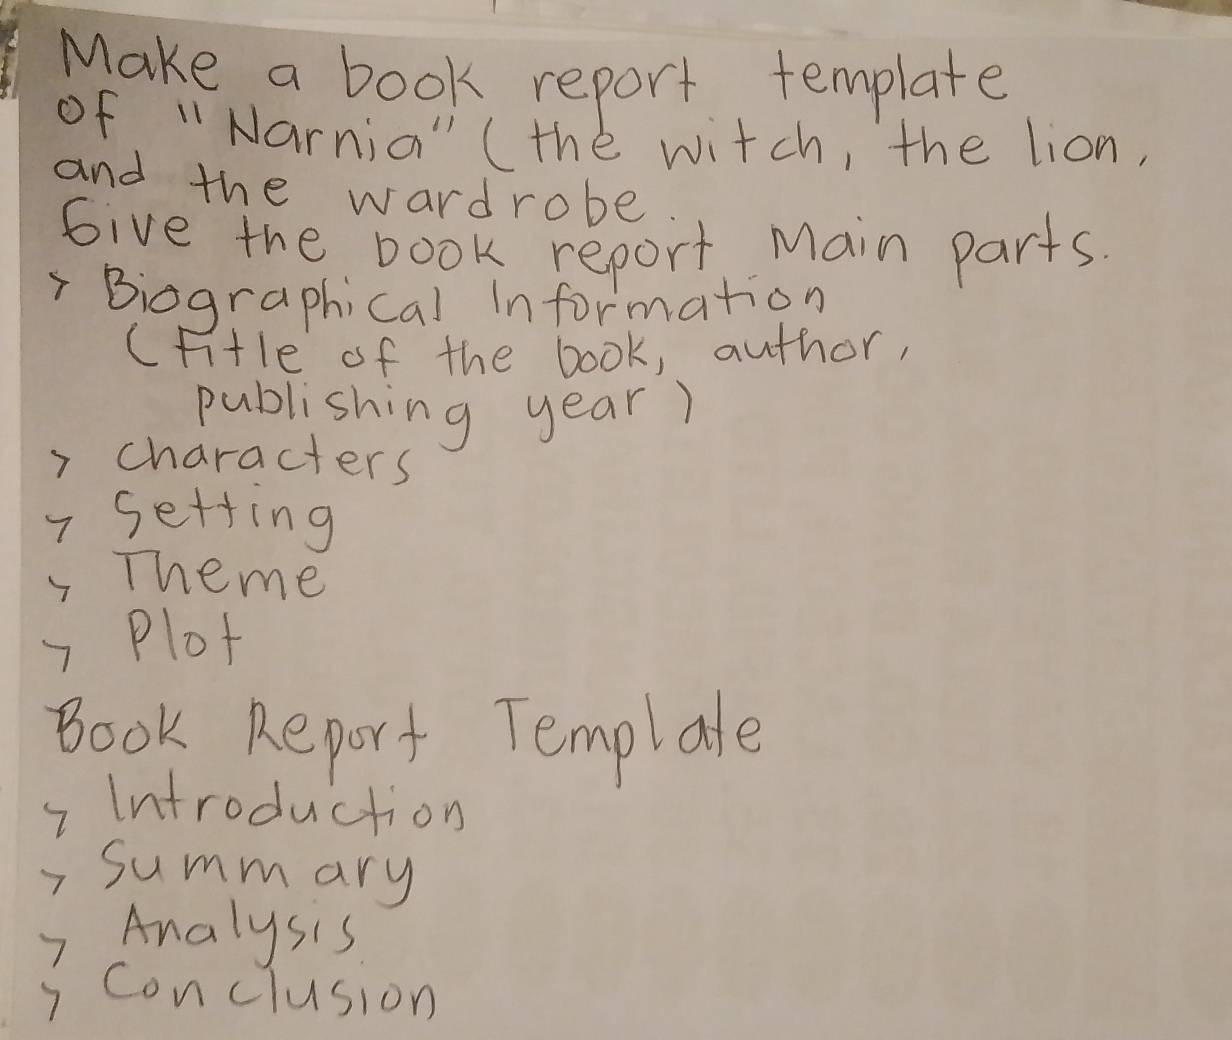 Make a book report template
of "Narnia" (the witch, the lion,
and the wardrobe.
Give the book report Main parts.
> Biographical Information
(Title of the book, author,
publishing year)
> characters
> Setting
> Theme
> Plot
Book Report Template
> Introduction
> Summary
> Analysis
> Conclusion